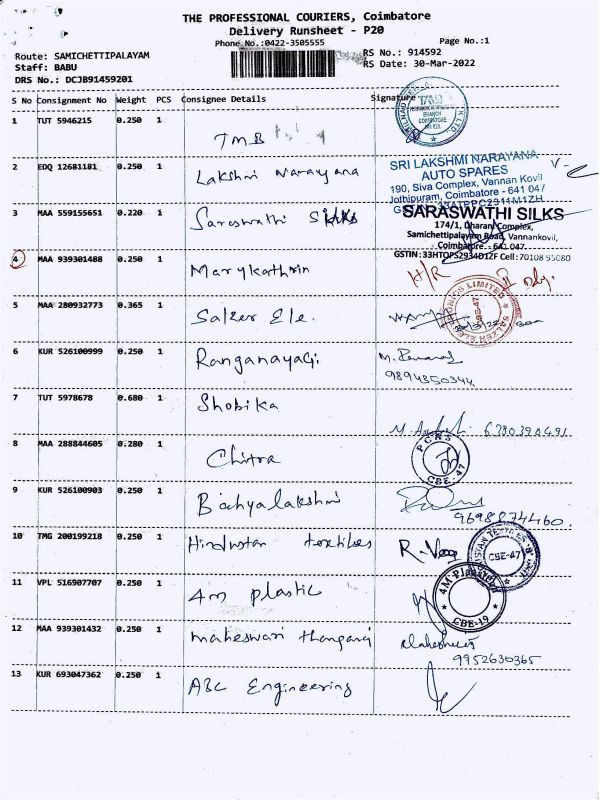 THE PROFESSIONAL COURIERS, Coimbatore
Delivery Runsheet - P20
Phone No.:0422-3505555
Page No.:1
Route: SAMICHETTIPALAYAM
RS No.: 914592
Staff: BABU
RS Date: 30-Mar-2022
DRS No.: DCJB91459201
S No Consignment No Weight PCS Consignee Details Signature
1 TUT 5946215 0.250 1 TMB
TMB
BRANCH
COIMBATORE
2 EDQ 12681181 0.250 1 Lakshmi Narayana
SRI LAKSHMI NARAYANA
AUTO SPARES
190, Siva Complex, Vannan Kovil
Jothipuram, Coimbatore - 641 047
3 MAA 559155651 0.220 1 Saraswathi Silks
SARASWATHI SILKS
174/1, Dharani Complex,
Samichettipalayam Road, Vannankovil,
Coimbatore - 641 047.
GSTIN :33HTOPS2934D1ZF Cell: 70108 95080
4 MAA 939301488 0.250 1 Marykathrin
H/R
5 MAA 280932773 0.365 1 Salzer Ele.
6 KUR 526100999 0.250 1 Ranganayagi
9894350344
7 TUT 5978678 0.680 1 Shobika
6380390491
8 MAA 288844605 0.280 1 Chitra
CBE-47
9 KUR 526100903 0.250 1 Bathyalakshmi
9698874460.
10 TMG 200199218 0.250 1 Hindustan textiles
CBE-47
11 VPL 516907707 0.250 1 4m plastic
CBE-19
12 MAA 939301432 0.250 1 maheswari thangaraj
9952630365
13 KUR 693047362 0.250 1 ABC Engineering